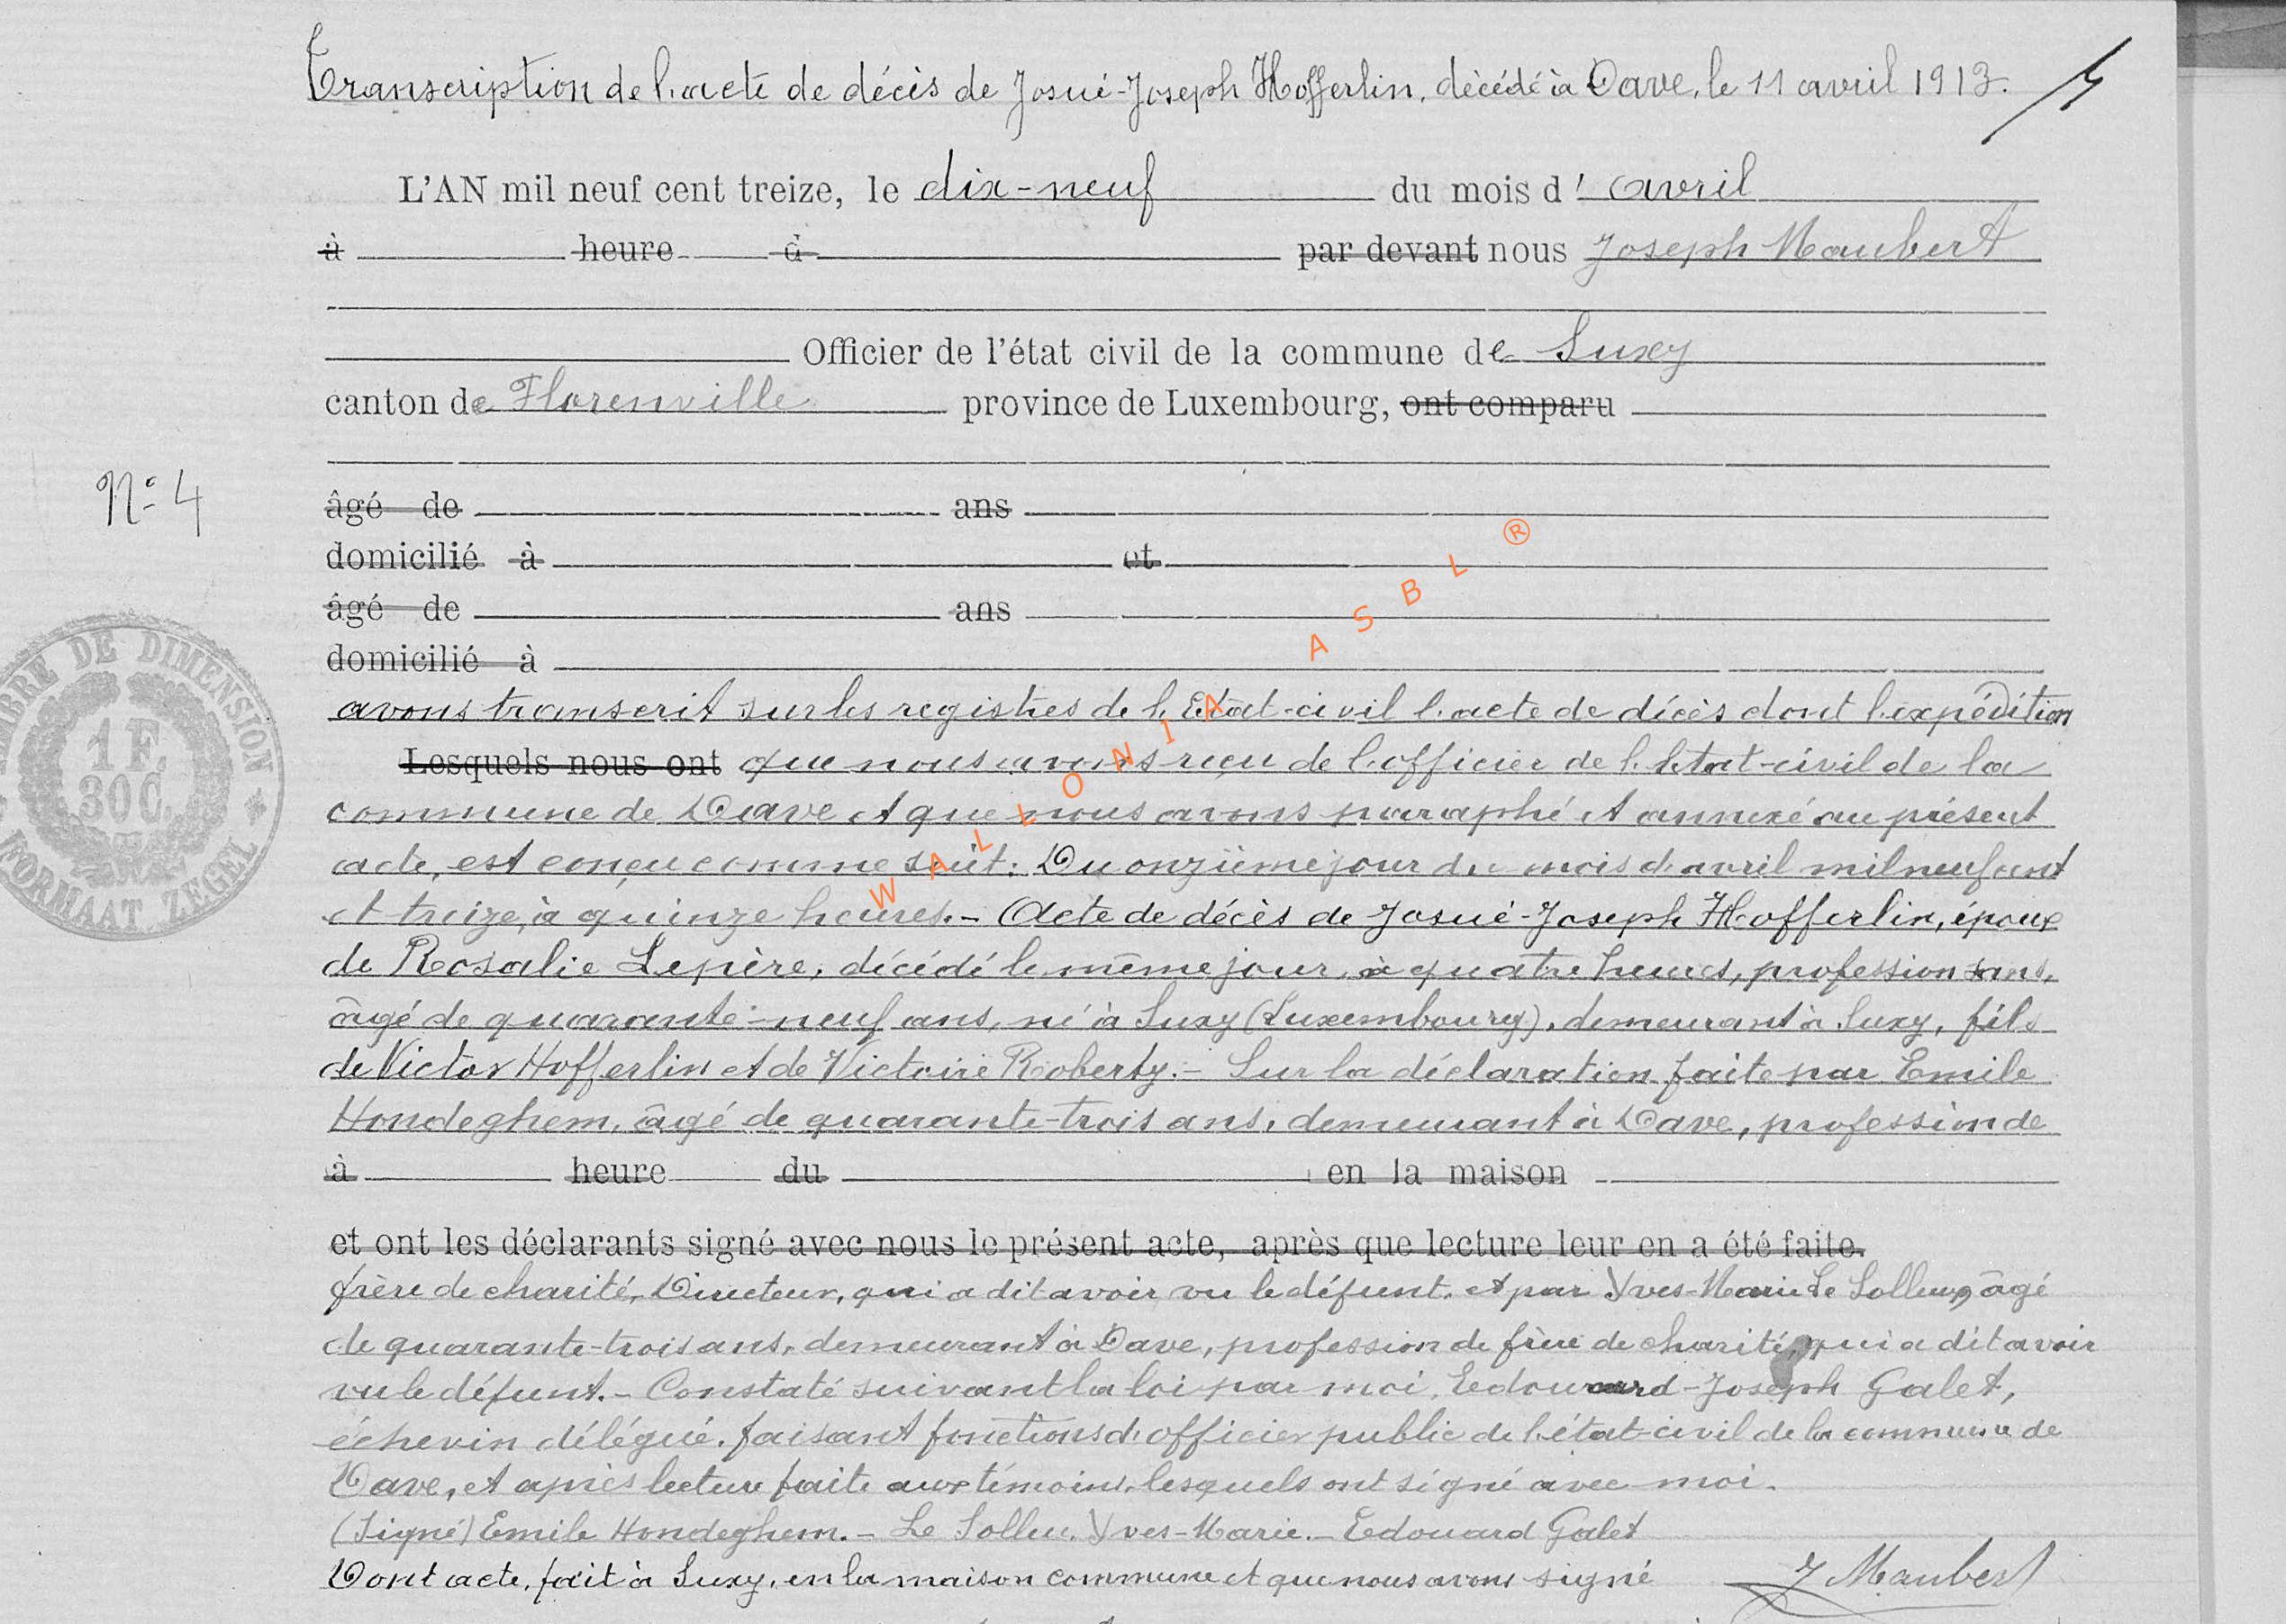 Transcription de l'acte de décès de Josué-Joseph Hofferlin, décédé à Dave, le 11 avril 1913.
L'AN mil neuf cent treize, le dix-neuf du mois d'avril
à heure d par devant nous Joseph Maubert
Officier de l'état civil de la commune de Suxy
canton de Florenville province de Luxembourg, ont comparu
N° 4
âgé de ans
domicilié à et
âgé de ans
domicilié à
TIMBRE DE DIMENSION
1 F. 30 C.
FORMAAT ZEGEL
avons transcrit sur les registres de l'Etat-civil l'acte de décès dont l'expédition
Lesquels nous ont que nous avons reçu de l'officier de l'Etat-civil de la
commune de Dave et que nous avons paraphé et annexé au présent
acte, est conçu comme suit: Du onzième jour du mois d'avril mil neuf cent
et treize, à quinze heures. - Acte de décès de Josué-Joseph Hofferlin, époux
de Rosalie Lepère, décédé le même jour, à quatre heures, profession sans,
âgé de quarante-neuf ans, né à Suxy (Luxembourg), demeurant à Suxy, fils
de Victor Hofferlin et de Victoire Roberty. - Sur la déclaration faite par Emile
Hondeghem, âgé de quarante-trois ans, demeurant à Dave, profession de
à heure du en la maison
et ont les déclarants signé avec nous le présent acte, après que lecture leur en a été faite.
frère de charité, Directeur, qui a dit avoir vu le défunt, et par Yves-Marie Le Solleu, âgé
de quarante-trois ans, demeurant à Dave, profession de frère de charité, qui a dit avoir
vu le défunt. - Constaté suivant la loi par moi, Edouard-Joseph Galet,
échevin délégué, faisant fonctions d'officier public de l'état-civil de la commune de
Dave, et après lecture faite aux témoins, lesquels ont signé avec moi.
(Signé) Emile Hondeghem. - Le Solleu. Yves-Marie. - Edouard Galet
Dont acte, fait à Suxy, en la maison commune et que nous avons signé
J Maubert
WALLONIA ASBL ®